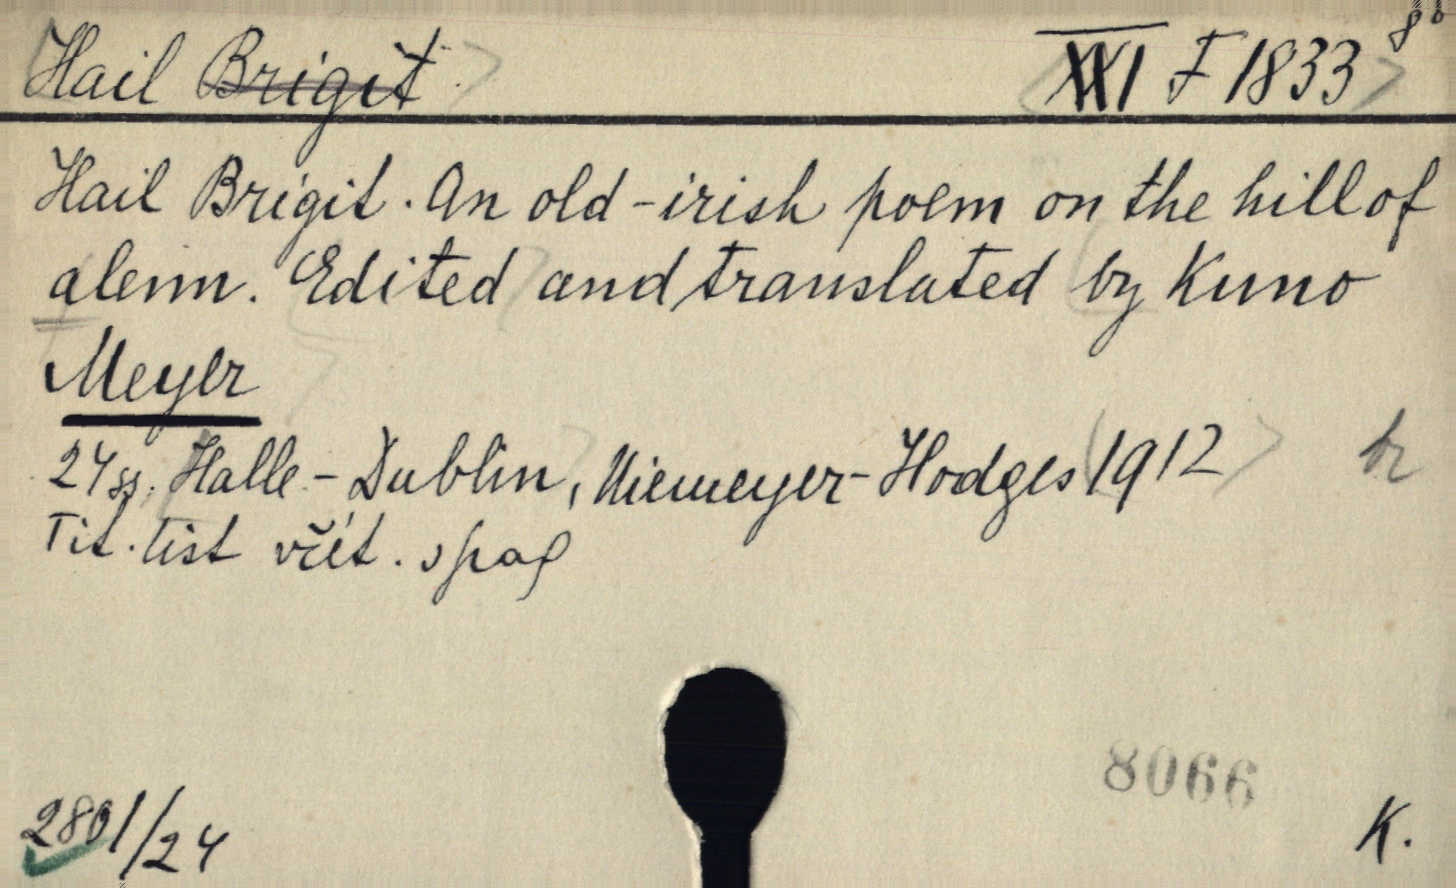 Hail Brigit. XXI F 1833 8°
Hail Brigit. An old-irish poem on the hill of
alenn. Edited and translated by Kuno
Meyer
24 ss. Halle - Dublin, Niemeyer - Hodges 1912 br
Tit. list včít. s pag
8066
2801/24 K.